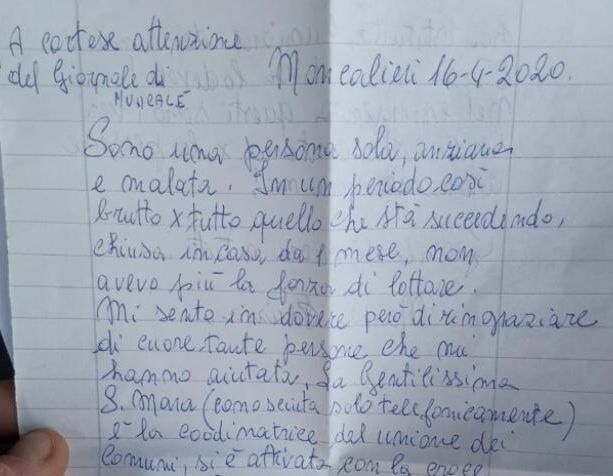 A cortese attenzione
del Giornale di Moncalieri 16-4-2020.
MONCALE
Sono una persona sola, anziana
e malata. In un periodo così
brutto x tutto quello che stà succedendo,
chiusa in casa da 1 mese, non
avevo più la forza di lottare.
Mi sento in dovere però di ringraziare
di cuore tante persone che mi
hanno aiutata, la Gentilissima
S. Mara (conosciuta solo telefonicamente)
è la coodinatrice del unione dei
comuni, si è attivata con la croce